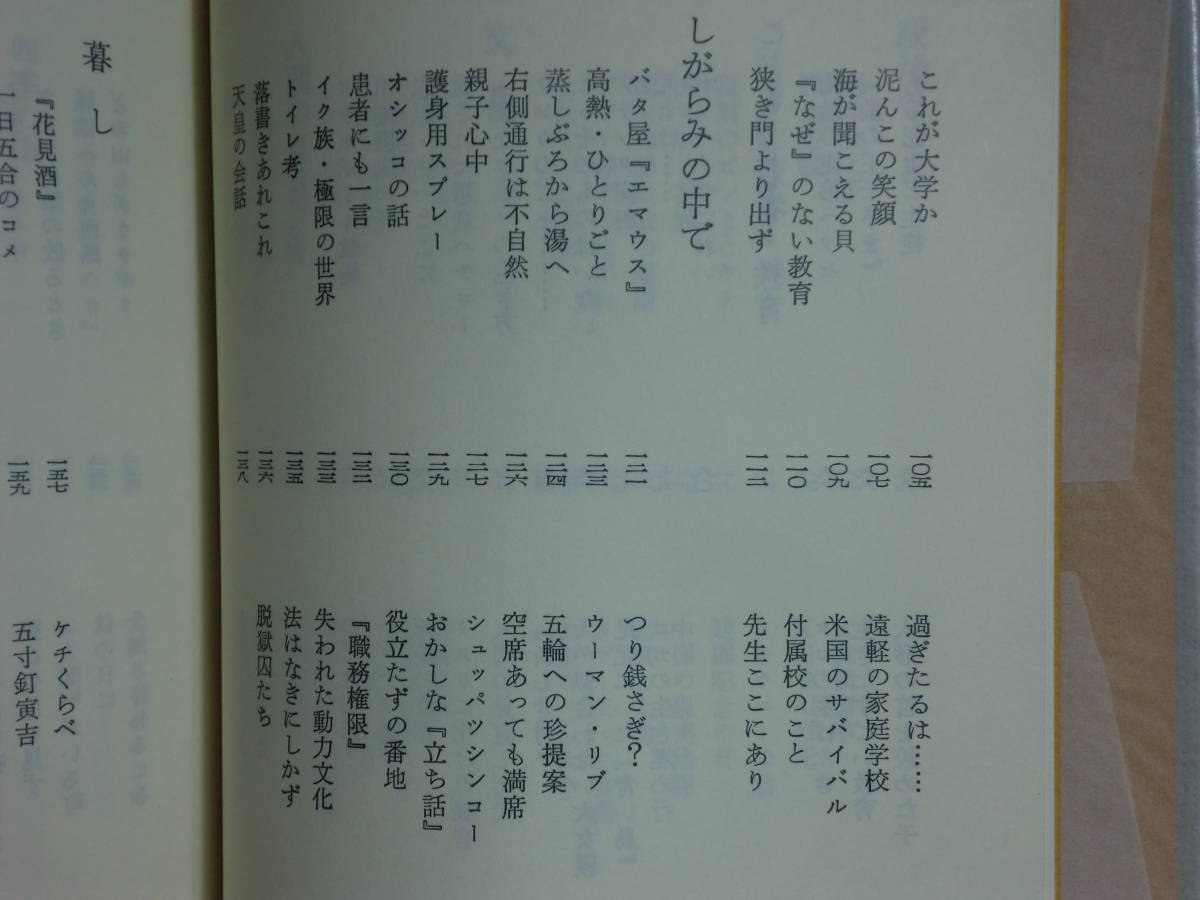 これが大学か 一〇五
泥んこの笑顔 一〇七
海が聞こえる貝 一〇九
『なぜ』のない教育 一一〇
狭き門より出ず 一一二
過ぎたるは……
遠軽の家庭学校
米国のサバイバル
付属校のこと
先生ここにあり
しがらみの中で
バタ屋『エマウス』 一二一
高熱・ひとりごと 一二三
蒸しぶろから湯へ 一二四
右側通行は不自然 一二六
親子心中 一二七
護身用スプレー 一二九
オシッコの話 一三〇
患者にも一言 一三二
イク族・極限の世界 一三三
トイレ考 一三五
落書きあれこれ 一三六
天皇の会話 一三八
つり銭さぎ？
ウーマン・リブ
五輪への珍提案
空席あっても満席
シュッパツシンコー
おかしな『立ち話』
役立たずの番地
『職務権限』
失われた動力文化
法はなきにしかず
脱獄囚たち
暮し
『花見酒』 一五七
一日五合のコメ 一五九
ケチくらべ
五寸釘寅吉